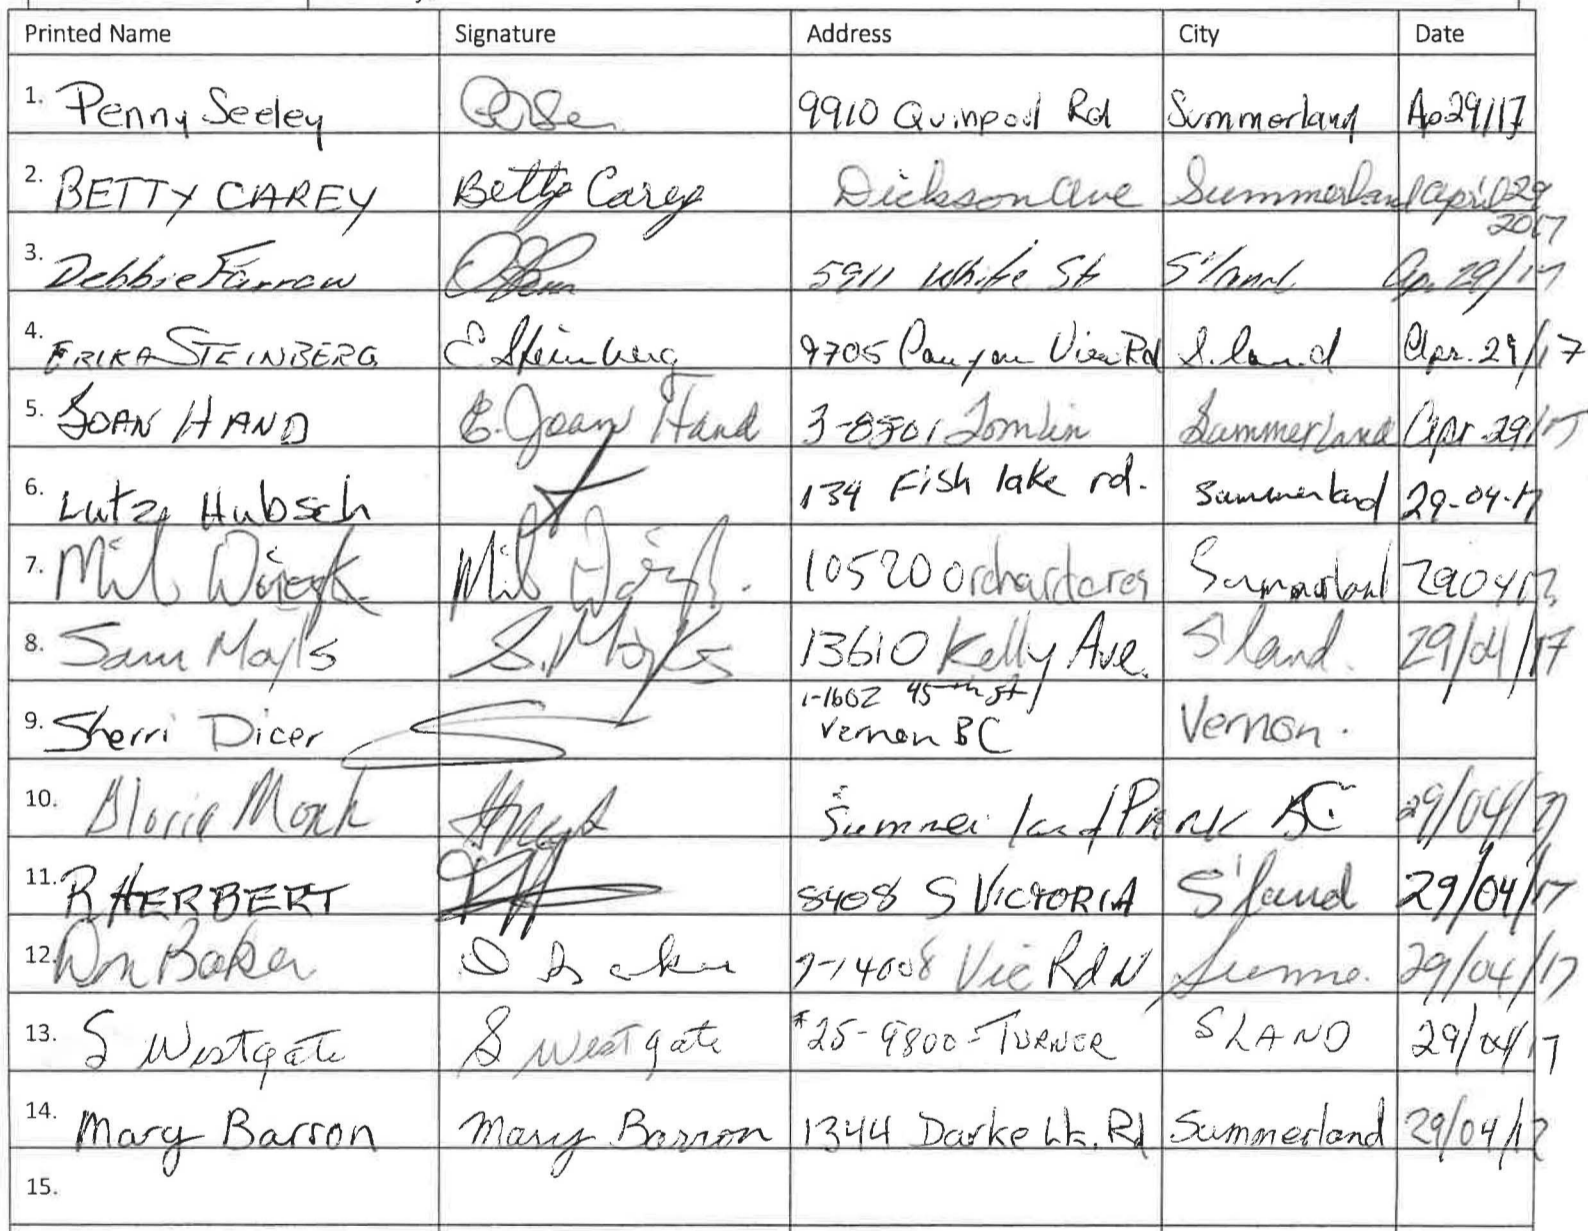 Printed Name Signature Address City Date
1. Penny Seeley 9910 Quinpool Rd Summerland Ap 29/17
2. BETTY CAREY Betty Carey Dickson Ave Summerland April 29
2017
3. Debbie Farrow 5911 White St S'land Ap. 29/17
4. ERIKA STEINBERG E Steinberg 9705 Canyon View Rd S.land Apr. 29/17
5. JOAN HAND E. Joan Hand 3-8501 Tomlin Summerland Apr. 29/17
6. Lutz Hubsch 134 Fish lake rd. Summerland 29-04-17
7. Mil 10520 Orchard Summerland 290417
8. Sam S. 13610 Kelly Ave. S'land. 29/04/17
1-1602 45th st
9. Sherri Dicer Vernon BC Vernon.
10. Gloria Monk Summerland BC 29/04/17
11. R HERBERT 8408 S VICTORIA S'land 29/04/17
12. Don Baker D Baker 7-14008 Vic Rd N Summe. 29/04/17
13. S Westgate S Westgate #25-9800-TURNER SLAND 29/04/17
14. Mary Barron Mary Barron 1344 Darke Lk. Rd Summerland 29/04/17
15.